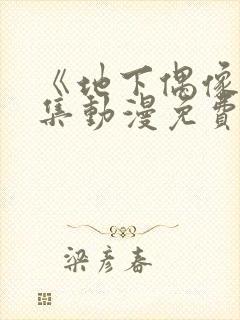 《地下偶像
集動漫免費
梁彥春